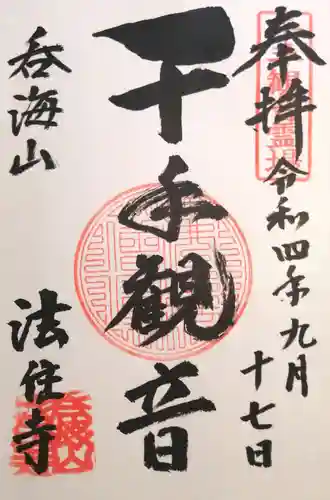 奉拝 令和四年九月
十七日
千手観音
呑海山
法住寺